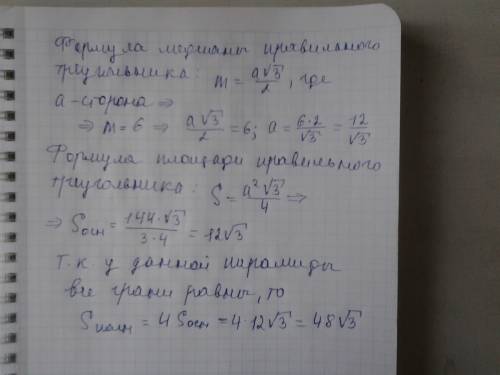 Формула медианы правильного
треугольника: m = a√3/2, где
a - сторона ⇒
⇒ m = 6 ⇒ a√3/2 = 6; a = 6·2/√3 = 12/√3
Формула площади правильного
треугольника: S = a²√3/4 ⇒
⇒ Sосн = 144·√3/3·4 = 12√3
Т.к. у данной пирамиды
все грани равны, то
Sполн = 4 Sосн = 4·12√3 = 48√3